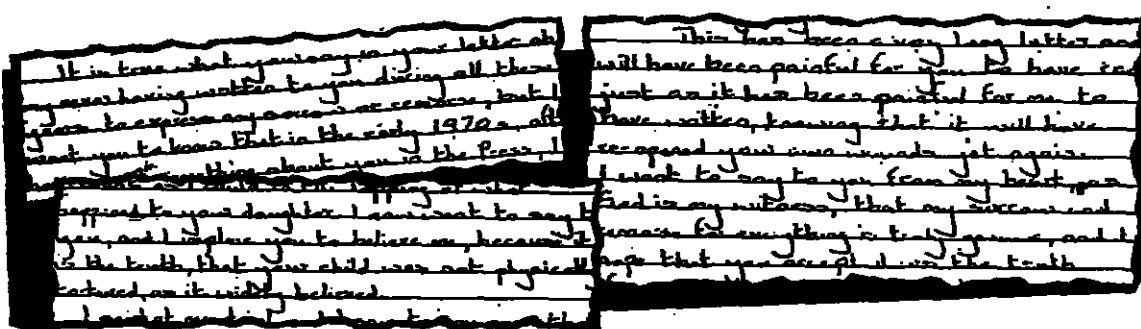 It is true what you say in your letter
my never having written to you during all these
years to express my sorrow or remorse, but I
want you to know that in the early 1970s,
anything about you in the Press, I
happened to your daughter. I now want to say to
you, and I implore you to believe me, because it
is the truth, that your child was not physically
tortured, as it widely believed.
This has been a very long letter and
will have been painful for you to have read
just as it has been painful for me to
have written, knowing that it will have
re-opened your own wounds yet again.
I want to say to you from my heart,
God is my witness, that my sorrow and
remorse for everything is truly genuine, and I
hope that you accept I is the truth